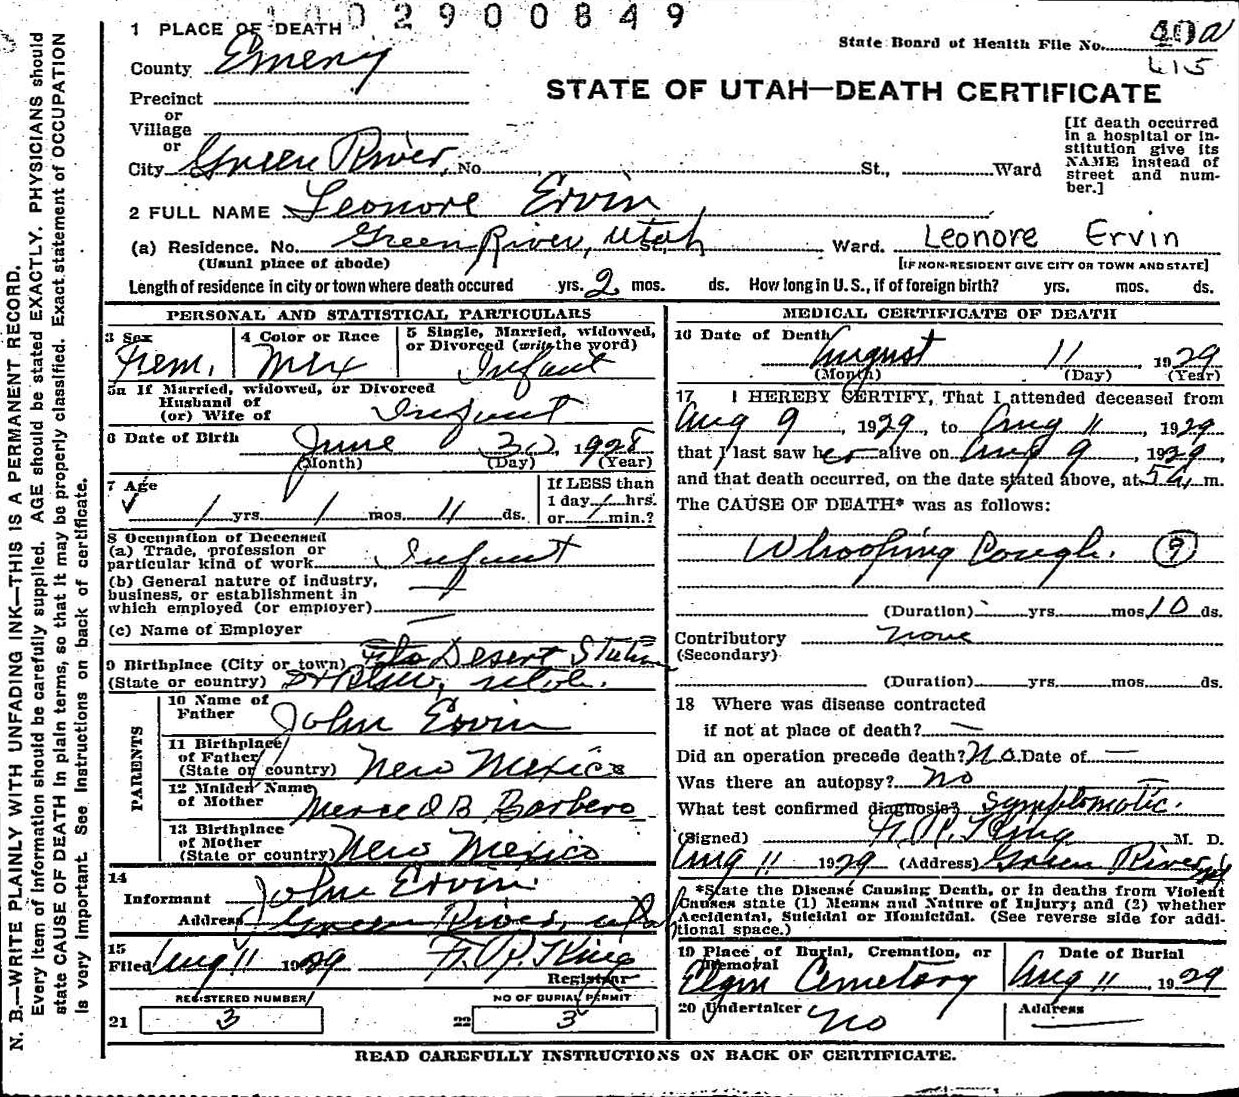 1002900849
1 PLACE OF DEATH
State Board of Health File No. 40a
415
County Emery
STATE OF UTAH—DEATH CERTIFICATE
Precinct
or
Village
or
City Green River, No. St., Ward
[If death occurred in a hospital or institution give its NAME instead of street and number.]
2 FULL NAME Leonore Ervin
(a) Residence. No. Green River, Utah St., Ward. Leonore Ervin
(Usual place of abode) [IF NON-RESIDENT GIVE CITY OR TOWN AND STATE]
Length of residence in city or town where death occured yrs. 2 mos. ds. How long in U. S., if of foreign birth? yrs. mos. ds.
PERSONAL AND STATISTICAL PARTICULARS
3 Sex
Fem.
4 Color or Race
Mex
5 Single, Married, widowed, or Divorced (write the word)
Infant
5a If Married, widowed, or Divorced
Husband of
(or) Wife of Infant
6 Date of Birth June 30, 1928
(Month) (Day) (Year)
7 Age
1 yrs. 1 mos. 11 ds.
If LESS than
1 day hrs.
or min.?
8 Occupation of Deceased
(a) Trade, profession or
particular kind of work Infant
(b) General nature of industry,
business, or establishment in
which employed (or employer)
(c) Name of Employer
9 Birthplace (City or town) Desert Station
(State or country)
PARENTS
10 Name of
Father John Ervin
11 Birthplace
of Father
(State or country) New Mexico
12 Maiden Name
of Mother Merced B Barbero
13 Birthplace
of Mother
(State or country) New Mexico
14
Informant John Ervin
Address Green River, Utah
15
Filed Aug 11 1929 F. P. King
Registrar
REGISTERED NUMBER
21 3
NO OF BURIAL PERMIT
22 3
MEDICAL CERTIFICATE OF DEATH
16 Date of Death August 11 1929
(Month) (Day) (Year)
17 I HEREBY CERTIFY, That I attended deceased from
Aug 9, 1929, to Aug 11, 1929
that I last saw her alive on Aug 9, 1929,
and that death occurred, on the date stated above, at 5 a. m.
The CAUSE OF DEATH* was as follows:
Whooping Cough. 9
(Duration) yrs. mos. 10 ds.
Contributory none
(Secondary)
(Duration) yrs. mos. ds.
18 Where was disease contracted
if not at place of death? —
Did an operation precede death? No. Date of —
Was there an autopsy? no
What test confirmed diagnosis? Symptomatic.
(Signed) F. P. King M. D.
Aug 11 1929 (Address) Green River, Ut
*State the Disease Causing Death, or in deaths from Violent
Causes state (1) Means and Nature of Injury; and (2) whether
Accidental, Suicidal or Homicidal. (See reverse side for addi-
tional space.)
19 Place of Burial, Cremation, or
Removal
Elgin Cemetery
Date of Burial
Aug 11, 1929
20 Undertaker No
Address —
READ CAREFULLY INSTRUCTIONS ON BACK OF CERTIFICATE.
N. B.—WRITE PLAINLY WITH UNFADING INK—THIS IS A PERMANENT RECORD.
Every item of Information should be carefully supplied. AGE should be stated EXACTLY. PHYSICIANS should
state CAUSE OF DEATH in plain terms, so that it may be properly classified. Exact statement of OCCUPATION
is very important. See Instructions on back of certificate.